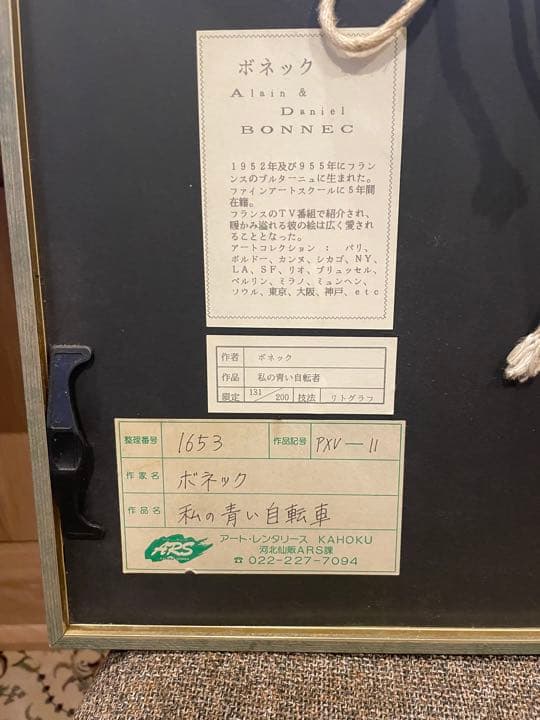 ボネック
Alain &
Daniel
BONNEC
1952年及び955年にフラン
ンスのブルターニュに生まれた。
ファインアートスクールに5年間
在籍。
フランスのTV番組で紹介され、
暖かみ溢れる彼の絵は広く愛され
ることとなった。
アートコレクション : パリ、
ボルドー、カンヌ、シカゴ、NY、
LA、SF、リオ、ブリュッセル、
ベルリン、ミラノ、ミュンヘン、
ソウル、東京、大阪、神戸、etc
作者 ボネック
作品 私の青い自転者
限定 131/200 技法 リトグラフ
整理番号 1653 作品記号 PXV-11
作家名 ボネック
作品名 私の青い自転車
ARS アート・レンタリース KAHOKU
河北仙販ARS課
☎022-227-7094